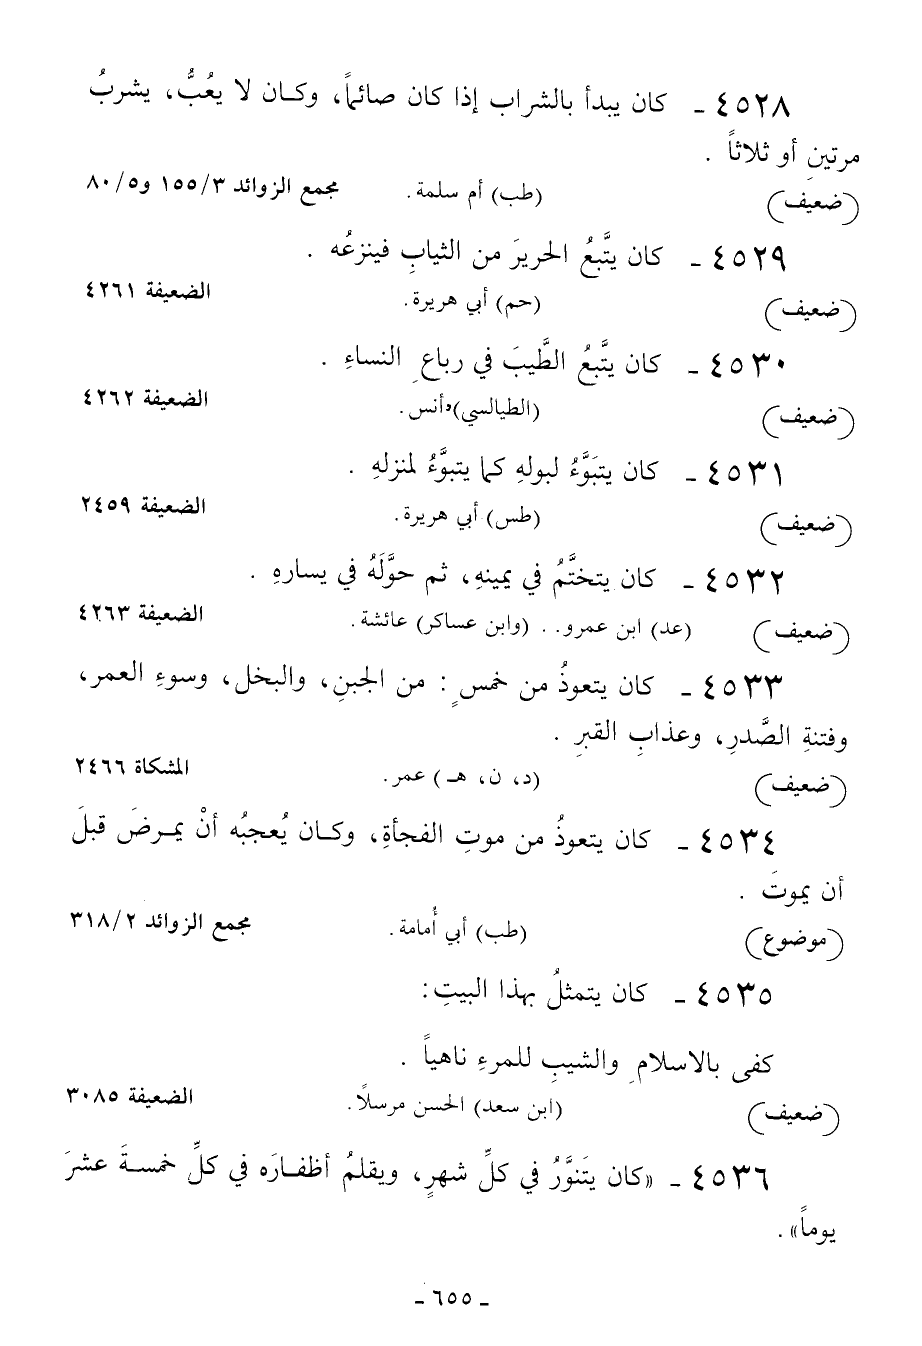 ٤٥٢٨ - كان يبدأ بالشراب إذا كان صائماً، وكان لا يعُبُّ، يشربُ
مرتينِ أو ثلاثاً .
(ضعيف) (طب) أم سلمة. مجمع الزوائد ١٥٥/٣ و٨٠/٥
٤٥٢٩ - كان يتَّبعُ الحريرَ من الثيابِ فينزعُه .
(ضعيف) (حم) أبي هريرة. الضعيفة ٤٢٦١
٤٥٣٠ - كان يتَّبعُ الطَّيبَ في رباعِ النساءِ .
(ضعيف) (الطيالسي) أنس. الضعيفة ٤٢٦٢
٤٥٣١ - كان يتَبَوَّءُ لبولهِ كما يتبوَّءُ لمنزلهِ .
(ضعيف) (طس) أبي هريرة. الضعيفة ٢٤٥٩
٤٥٣٢ - كان يتختَّمُ في يمينهِ، ثم حوَّلَهُ في يسارهِ .
(ضعيف) (عد) ابن عمرو. . (وابن عساكر) عائشة. الضعيفة ٤٢٦٣
٤٥٣٣ - كان يتعوذُ من خمسٍ : من الجبنِ، والبخل، وسوءِ العمر،
وفتنةِ الصَّدرِ، وعذابِ القبرِ .
(ضعيف) (د، ن، هـ) عمر. المشكاة ٢٤٦٦
٤٥٣٤ - كان يتعوذُ من موتِ الفجأةِ، وكان يُعجبُه أنْ يمرضَ قبلَ
أن يموتَ .
(موضوع) (طب) أبي أُمامة. مجمع الزوائد ٣١٨/٢
٤٥٣٥ - كان يتمثلُ بهذا البيتِ:
كفى بالاسلامِ والشيبِ للمرءِ ناهياً .
(ضعيف) (ابن سعد) الحسن مرسلًا. الضعيفة ٣٠٨٥
٤٥٣٦ - «كان يتَنوَّرُ في كلِّ شهرٍ، ويقلمُ أظفارَه في كلِّ خمسةَ عشرَ
يوماً» .
- ٦٥٥ -